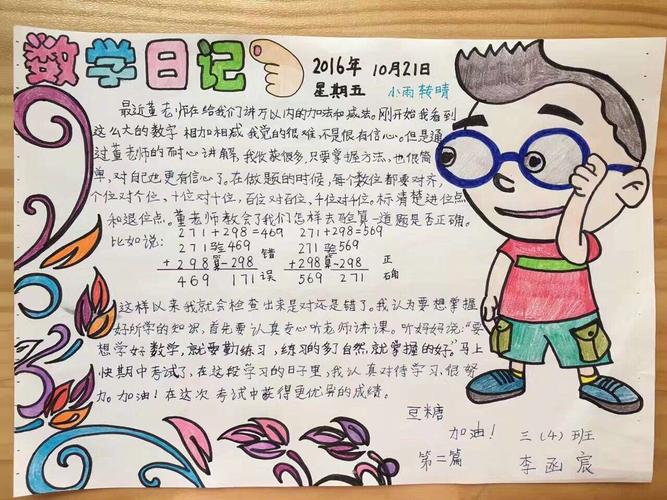 数学日记
2016年 10月21日
星期五 小雨转晴
最近董老师在给我们讲万以内的加法和减法。刚开始我看到
这么大的数字相加相减,我觉的很难,不是很有信心。但是通
过董老师的耐心讲解,我收获很多,只要掌握方法,也很简
单,对自己也更有信心了。在做题的时候,每个数位都要对齐,
个位对个位、十位对十位,百位对百位,千位对千位。标清楚进位点
和退位点。董老师教会了我们怎样去验算一道题是否正确。
比如说: 271+298=469 271+298=569
271 验 469 271 验 569
+298 算 -298 错 +298 算 -298 正
469 171 误 569 271 确
这样以来我就会检查出来是对还是错了。我认为要想掌握
好所学的知识,首先要认真专心听老师讲课。听好妈说:"要
想学好数学,就要勤练习,练习的多了自然,就掌握的好。"马上
快期中考试了,在这段学习的日子里,我认真对待学习,很努
力。加油!在这次考试中获得更优异的成绩。
豆糖
加油! 三(4)班
第二篇 李函宸